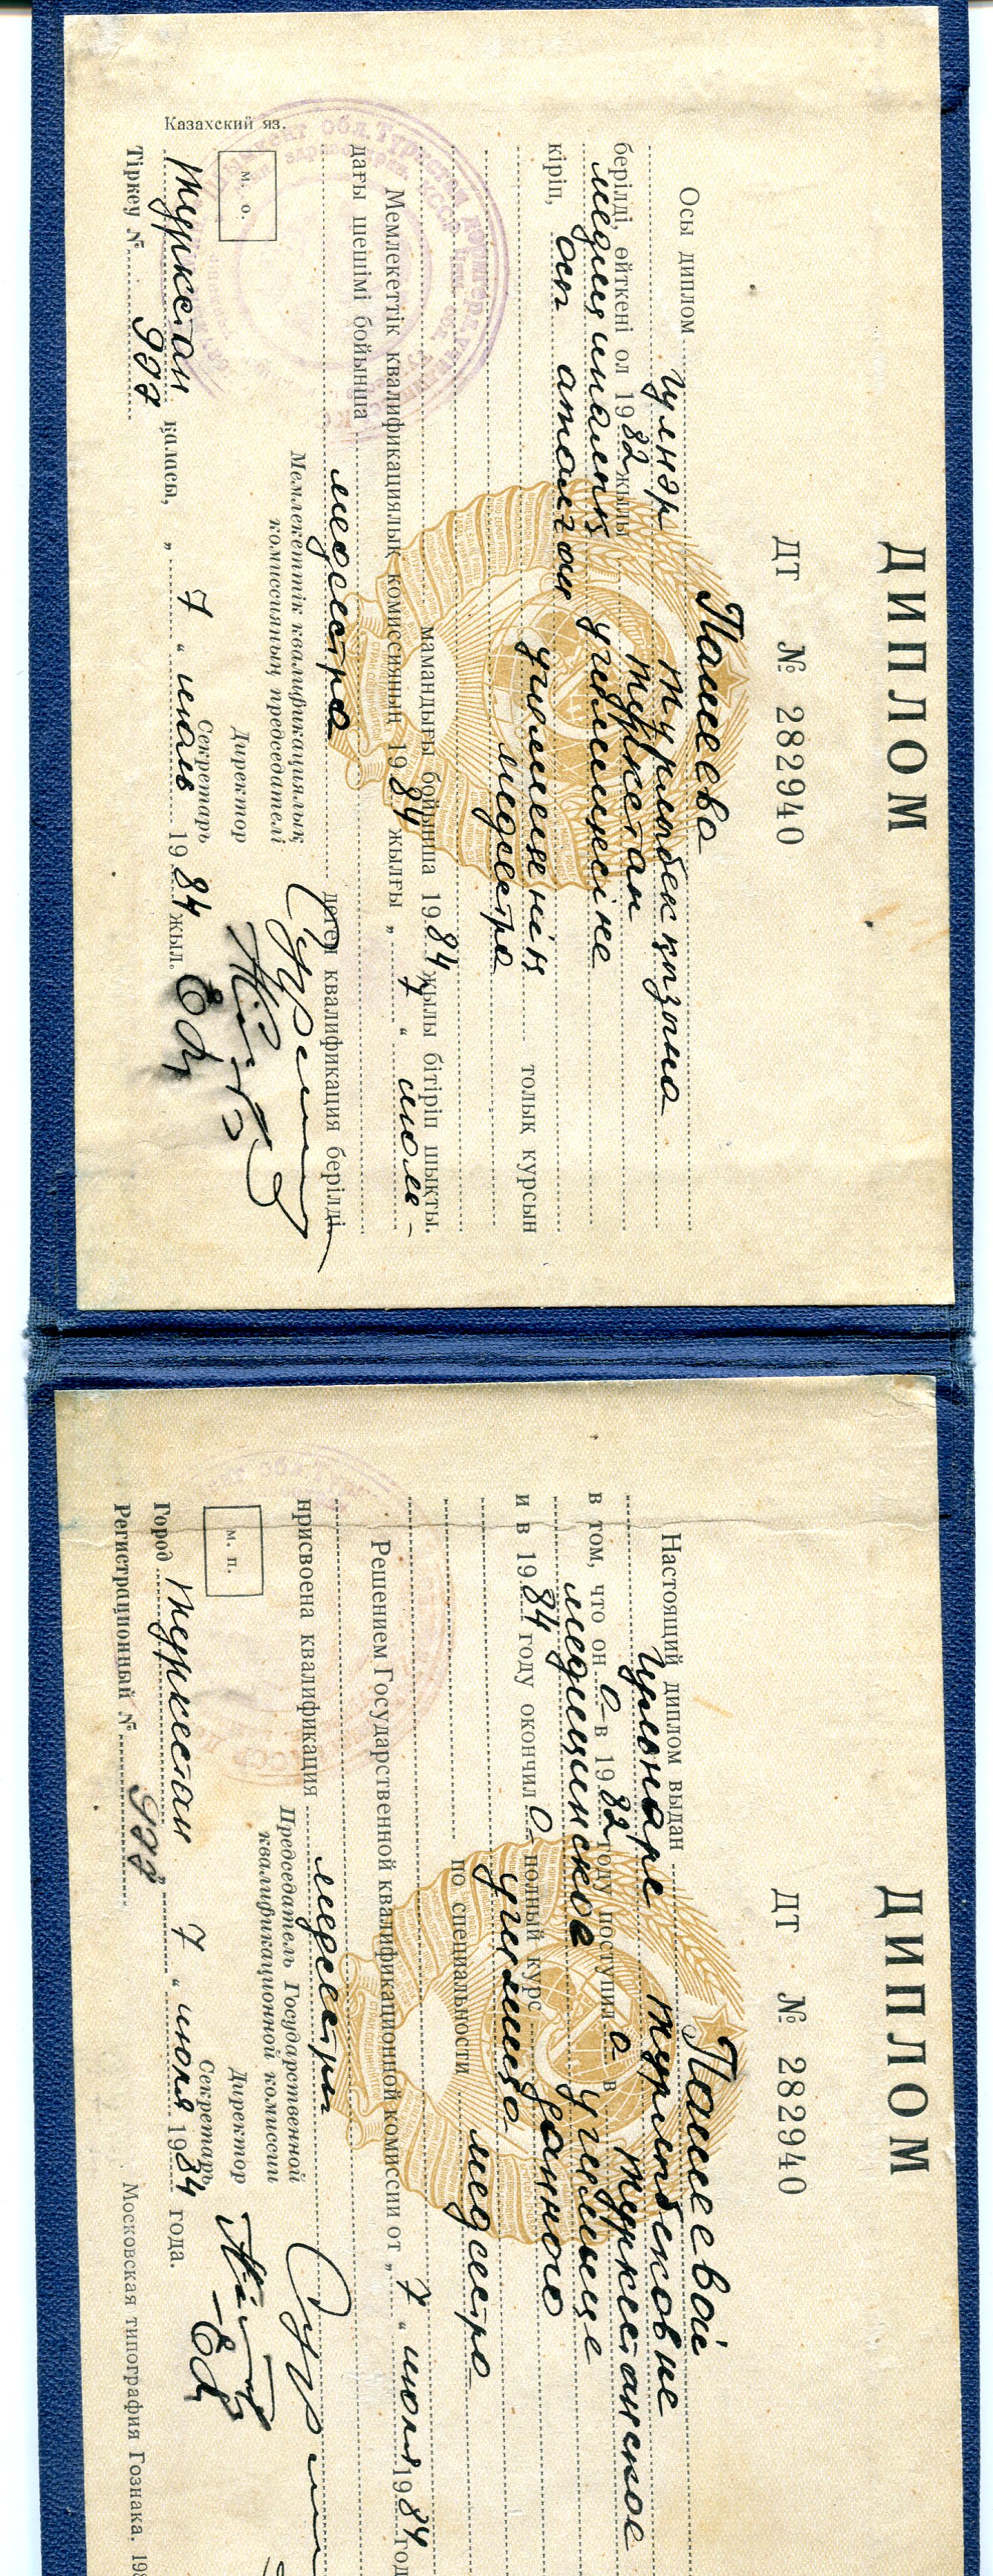 ДИПЛОМ
ДТ № 282940
Пашеева
Осы диплом Гулнар Турлыбекқызына
берілді, өйткені ол 1982 жылы Туркстан
медициналық училищесіне
кіріп, осы аталған
училищенің толық курсын
медсестра
мамандығы бойынша 1984 жылы бітіріп шықты.
Мемлекеттік квалификациялық комиссияның 1984 жылғы „7“ июль-
дағы шешімі бойынша
медсестра деген квалификация берілді.
Мемлекеттік квалификациялық
комиссияның председателі
Директор
Секретарь
м. о.
Туркстан қаласы, „7“ июль 1984 жыл.
Тіркеу №
Казахский яз.
ДИПЛОМ
ДТ № 282940
Пашеевой
Настоящий диплом выдан
Гульнаре Турлыбековне
в том, что он а в 1982 году поступил а в Туркестанское
медицинское училище
и в 1984 году окончил а полный курс данного
училища
по специальности медсестра
Решением Государственной квалификационной комиссии от „7“ июля 1984 год
присвоена квалификация
медсестры
Председатель Государственной
квалификационной комиссии
Директор
Секретарь
м. п.
Город Туркестан „7“ июля 1984 года.
Регистрационный №
Московская типография Гознака. 198